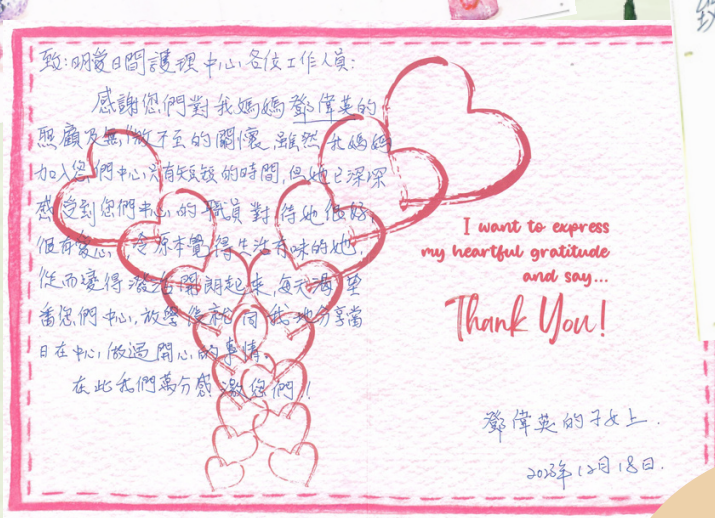 致:明愛日間護理中心各位工作人員:
感謝您們對我媽媽鄧偉英的
照顧及無微不至的關懷,雖然我媽媽
加入您們中心只有短短的時間,但她已深深
感受到您們中心的職員對待她很好,
很有愛心,令原本覺得生活冇味的她,
從而變得活潑開朗起來,每天渴望
番您們中心,放學後就同我地分享當
日在中心做過開心的事情
在此我們萬分感激您們!
I want to express
my heartful gratitude
and say...
Thank You!
鄧偉英的子女上.
2023年12月18日.